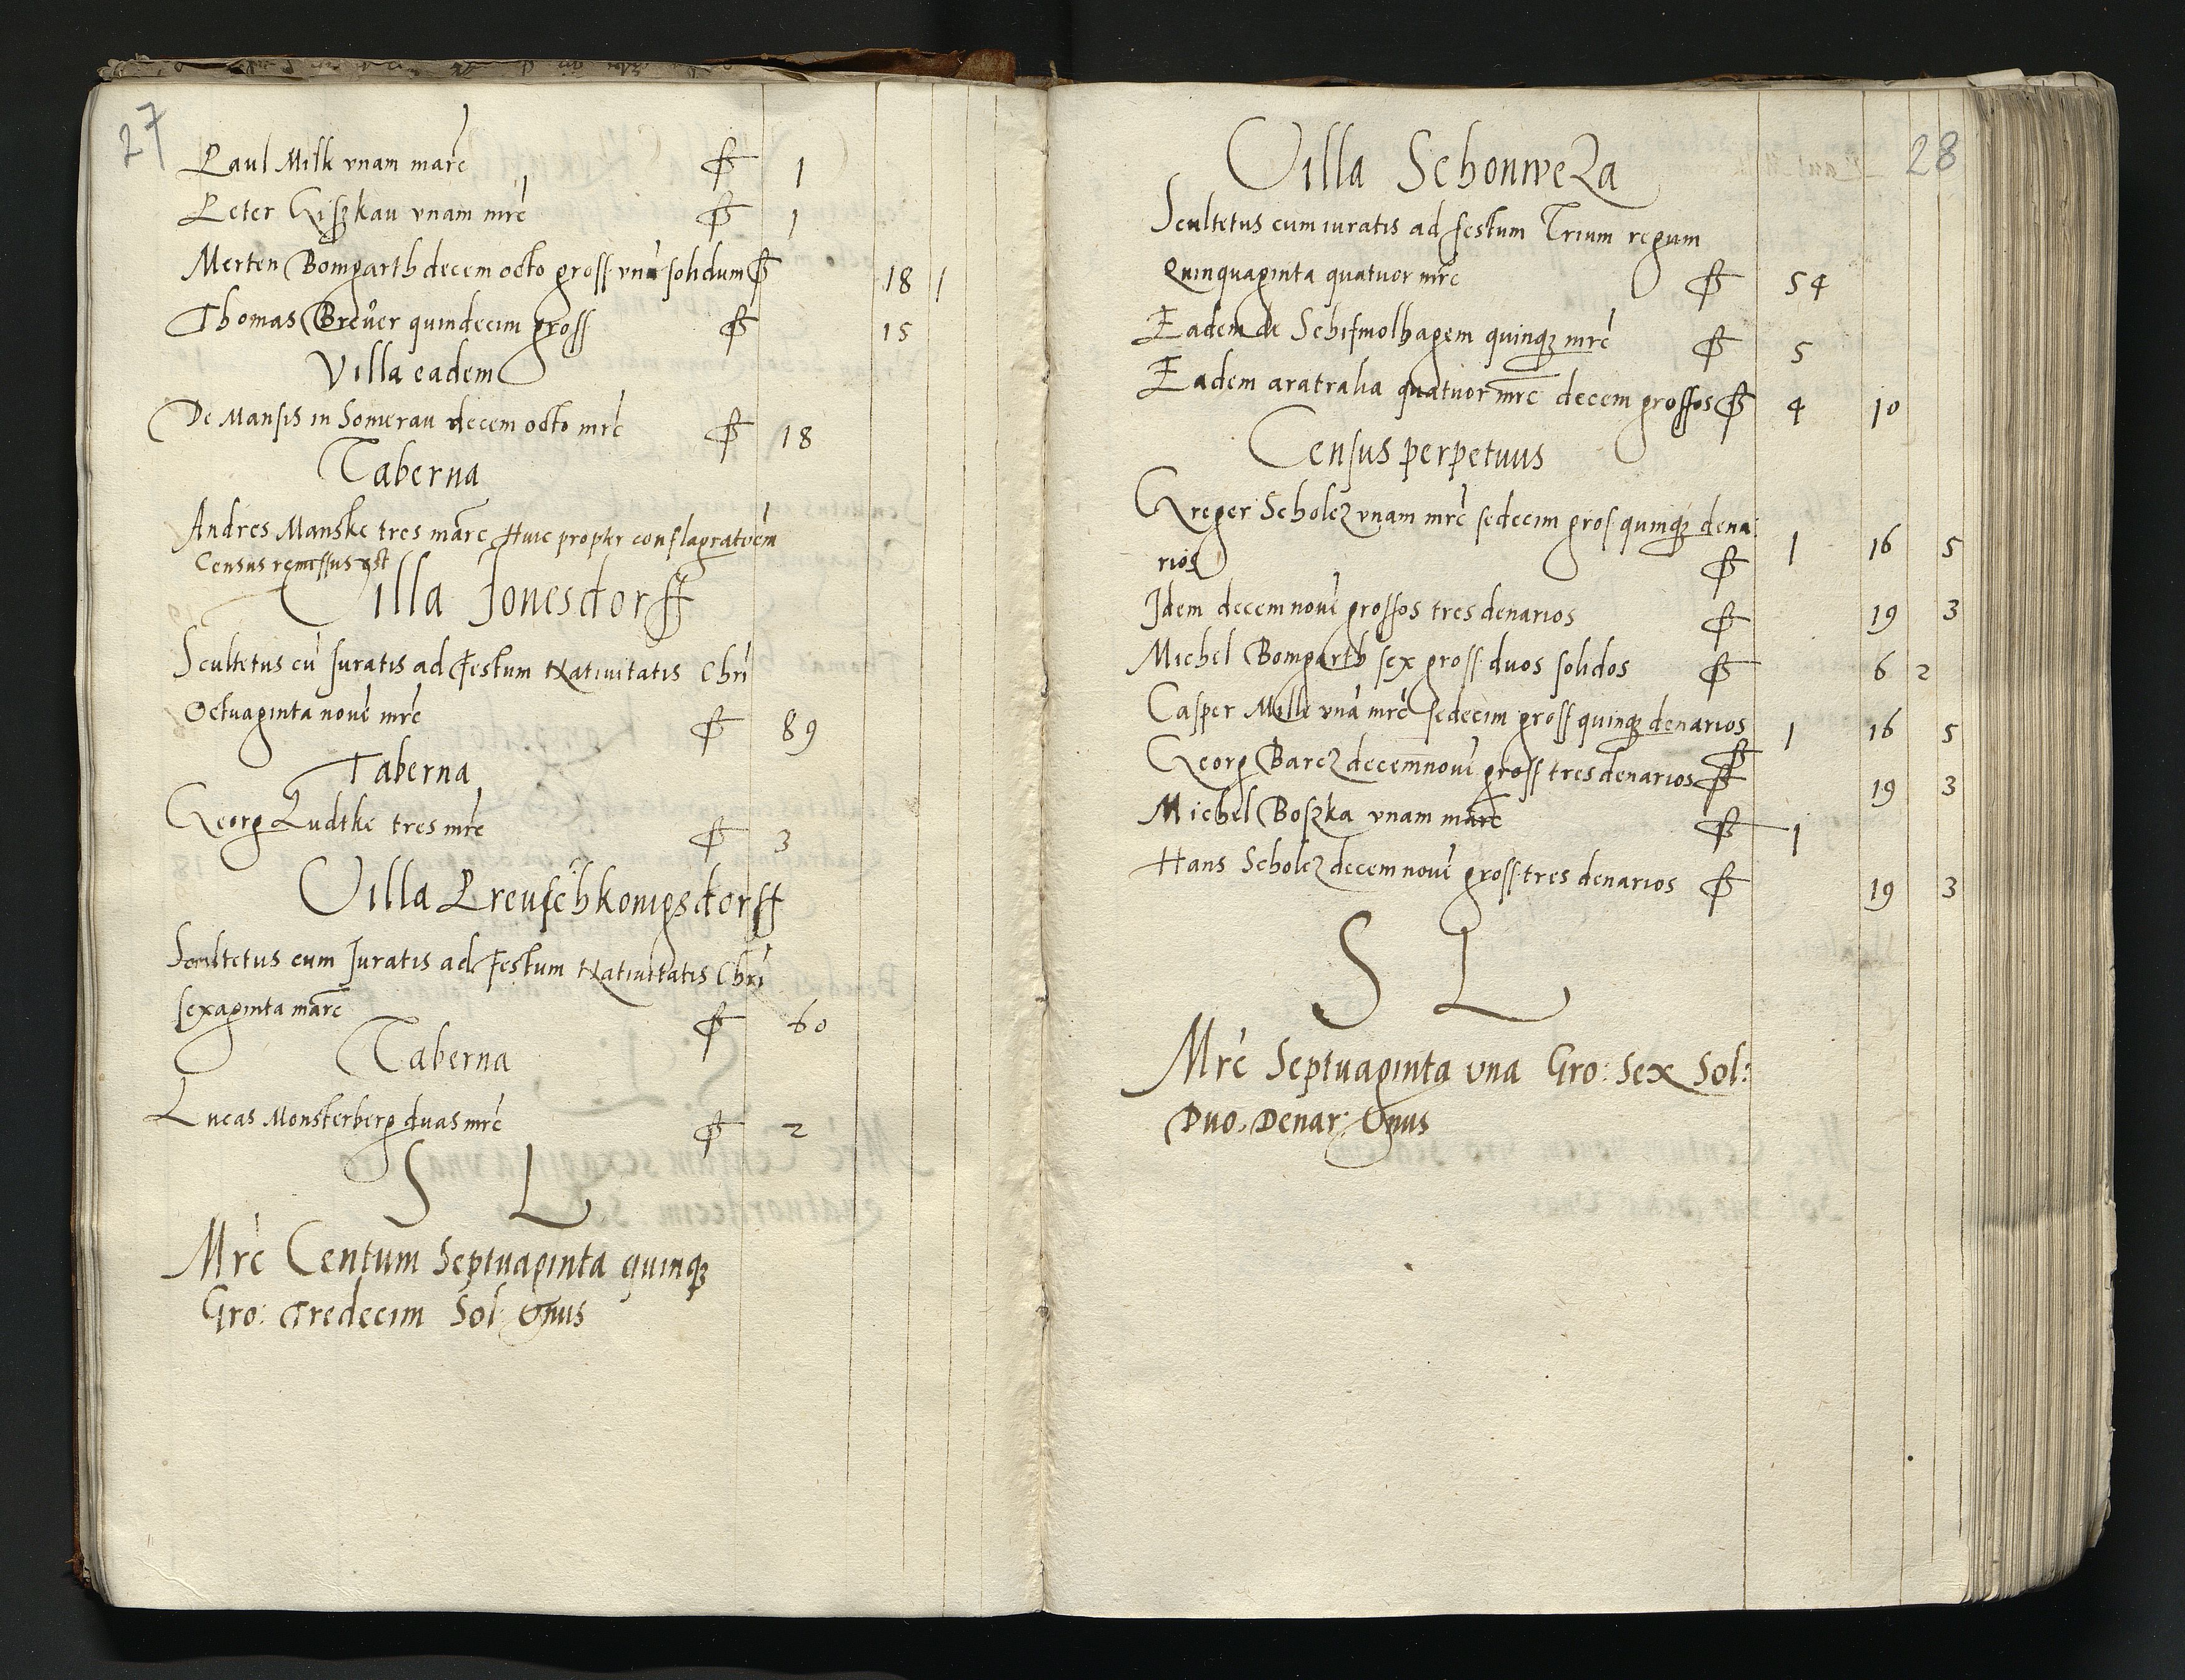 27
Paul Milk vnam marc ꝭ 1
Peter Giszkau vnam mrc ꝭ 1
Merten Bomgarth decem octo gross vnū solidum ꝭ 18 1
Thomas Breuer quindecim gross ꝭ 15
Villa eadem
De Mansis in Somerau decem octo mrc ꝭ 18
Taberna
Andres Manske tres marc Huic propter conflagratōem
Census remissus est
Villa Jonesdorff
Scultetus cū Juratis ad Festum Natiuitatis Chri
Octuaginta nouē mrc ꝭ 89
Taberna
Georg Ludtke tres mrc ꝭ 3
Villa Preuschkonigsdorff
Scultetus cum Juratis ad Festum Natiuitatis Chri
sexaginta marc ꝭ 60
Taberna
Lucas Monsterberg duas mrc ꝭ 2
S L
Mrc Centum Septuaginta quinqꝫ
Gro: Tredecim Sol: Vnus
28
Villa Schonweza
Scultetus cum iuratis ad festum Trium regum
Quinquaginta quatuor mrc ꝭ 54
Eadem de Schifmolhagem quinqꝫ mrc ꝭ 5
Eadem aratralia quatuor mrc decem grossos ꝭ 4 10
Census perpetuus
Greger Scholcz vnam mrc sedecim gros quinqꝫ dena:
rios ꝭ 1 16 5
Idem decem nouē grossos tres denarios ꝭ 19 3
Michel Bomgarth sex gross duos solidos ꝭ 6 2
Casper Mille vnā mrc sedecim gross quinqꝫ denarios ꝭ 1 16 5
Georg Barcz decemnouē gross tres denarios ꝭ 19 3
Michel Boszka vnam marc ꝭ 1
Hans Scholcz decem nouē gross tres denarios ꝭ 19 3
S L
Mrc Septuaginta vna Gro: Sex Sol:
Duo. Denar: Vnus